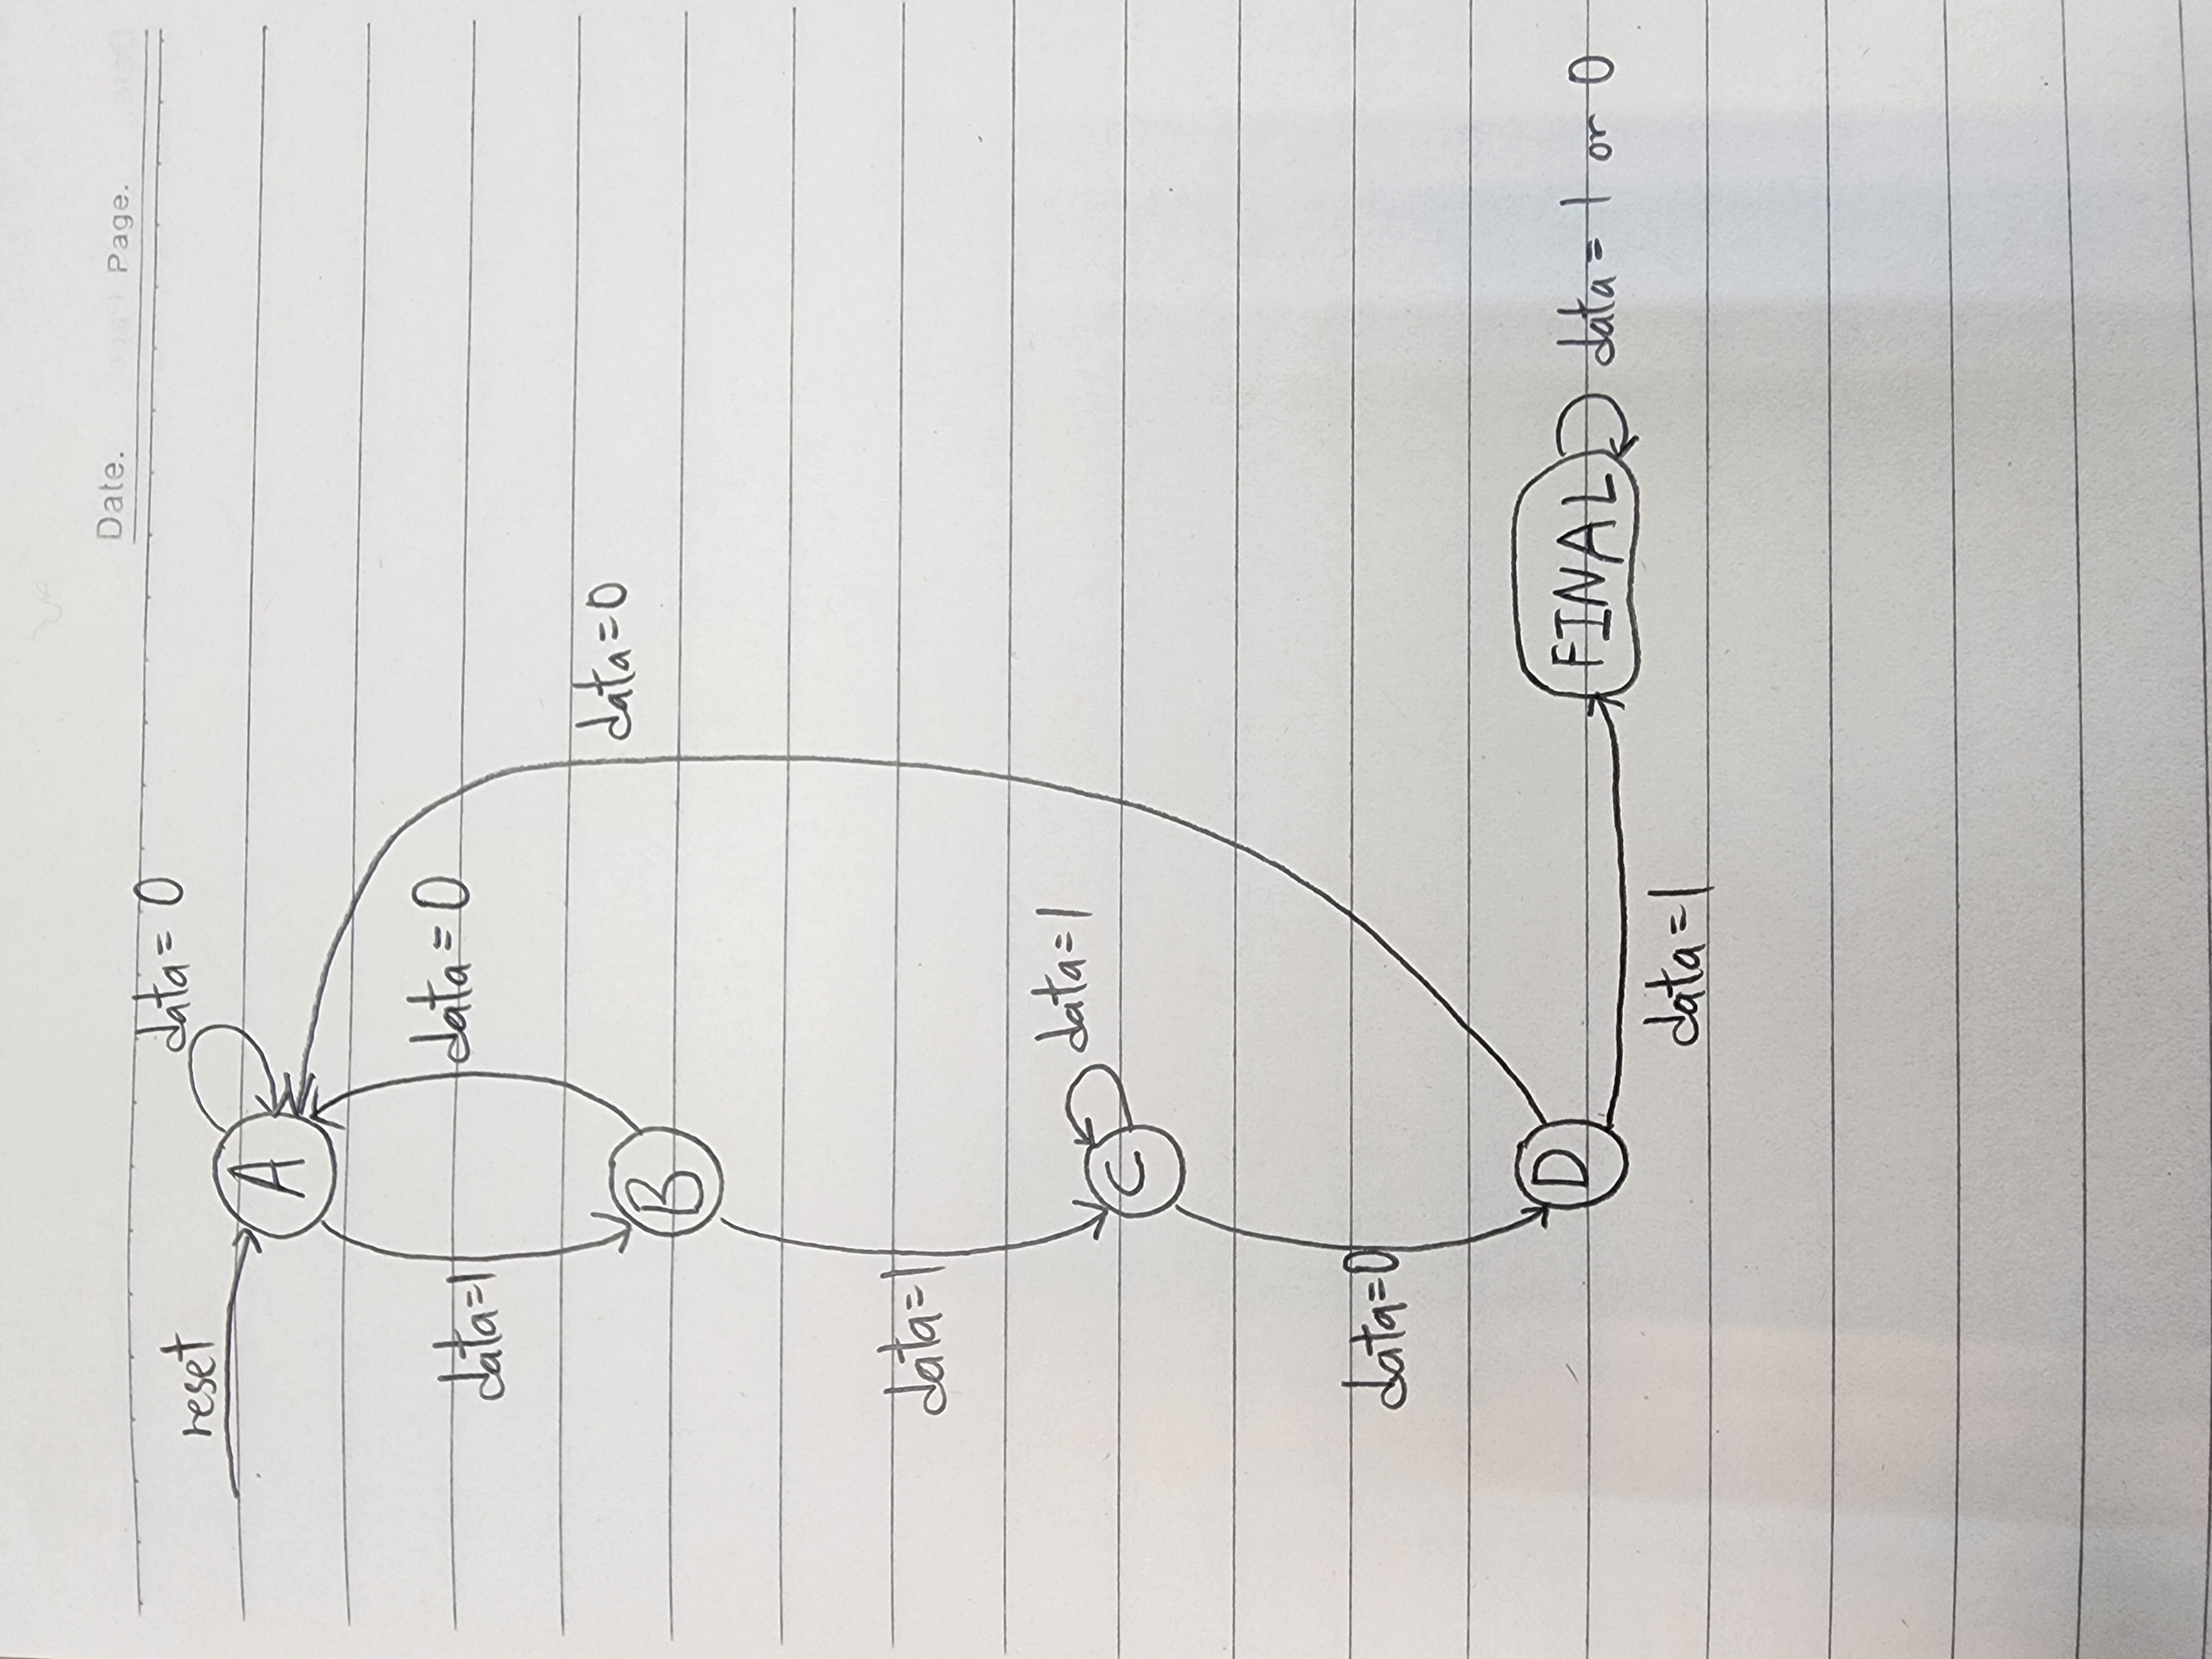 Date. Page.
data = 0
reset
A
data=1
data = 0
data=0
B
data=1
data=1
C
data=0
D
FINAL
data = 1 or 0
data=1